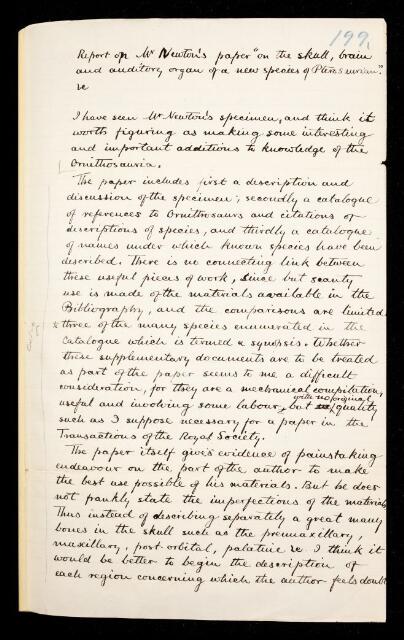 199.
Report on Mr Newton's paper "on the skull, brain
and auditory organ of a new species of Pterosaurian"
&c
I have seen Mr Newton's specimen, and think it
worth figuring as making some interesting
and important additions to knowledge of the
Ornithosauria.
The paper includes first a description and
discussion of the specimen; secondly a catalogue
of references to Ornithosaurs and citations or
descriptions of species, and thirdly a catalogue
of names under which known species have been
described. There is no connecting link between
these useful pieces of work, since but scanty
use is made of the materials available in the
Bibliography, and the comparisons are limited to
three of the many species enumerated in the
Catalogue which is termed a synopsis. Whether
these supplementary documents are to be treated
as part of the paper seems to me a difficult
consideration, for they are a mechanical compilation,
useful and involving some labour, but with no original quality
such as I suppose necessary for a paper in the
Transactions of the Royal Society.
The paper itself gives evidence of painstaking
endeavour on the part of the author to make
the best use possible of his materials. But he does
not frankly state the imperfections of the materials
Thus instead of describing separately a great many
bones in the skull such as the premaxillary,
maxillary, post-orbital, palatine &c I think it
would be better to begin the description of
each region concerning which the author feels doubt